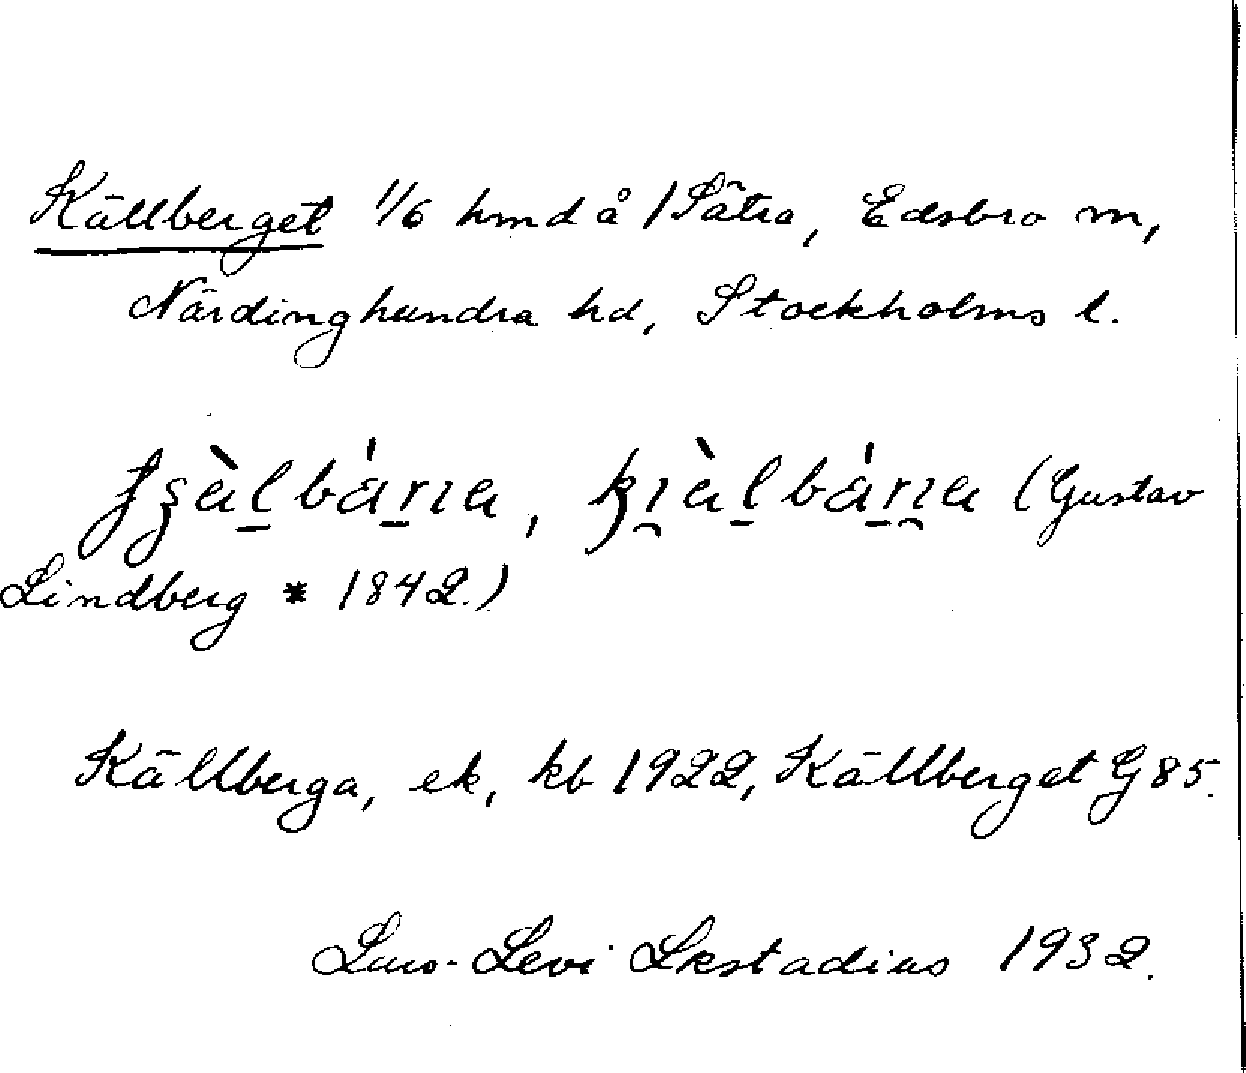 Källberget 1/6 hmd å /Sätra, Edsbro sn,
Närdinghundra hd, Stockholms l.
(Gustav
Lindberg * 1842.)
Källberga, ek, kb 1922, Källberget G 85.
Lars-Levi Læstadius 1932.